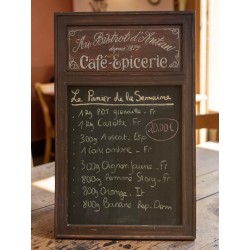 Au Bistrot d'Antan
depuis 1873
Café-Epicerie
Le Panier de la Semaine
1 kg PDT Fr
1 kg Carotte Fr
300g Avocat Esp
1 Concombre Fr
20,00€
300g Oignon Jaune Fr
800g Pomme Story Fr
800g Orange It
800g Banane Rep. Dom